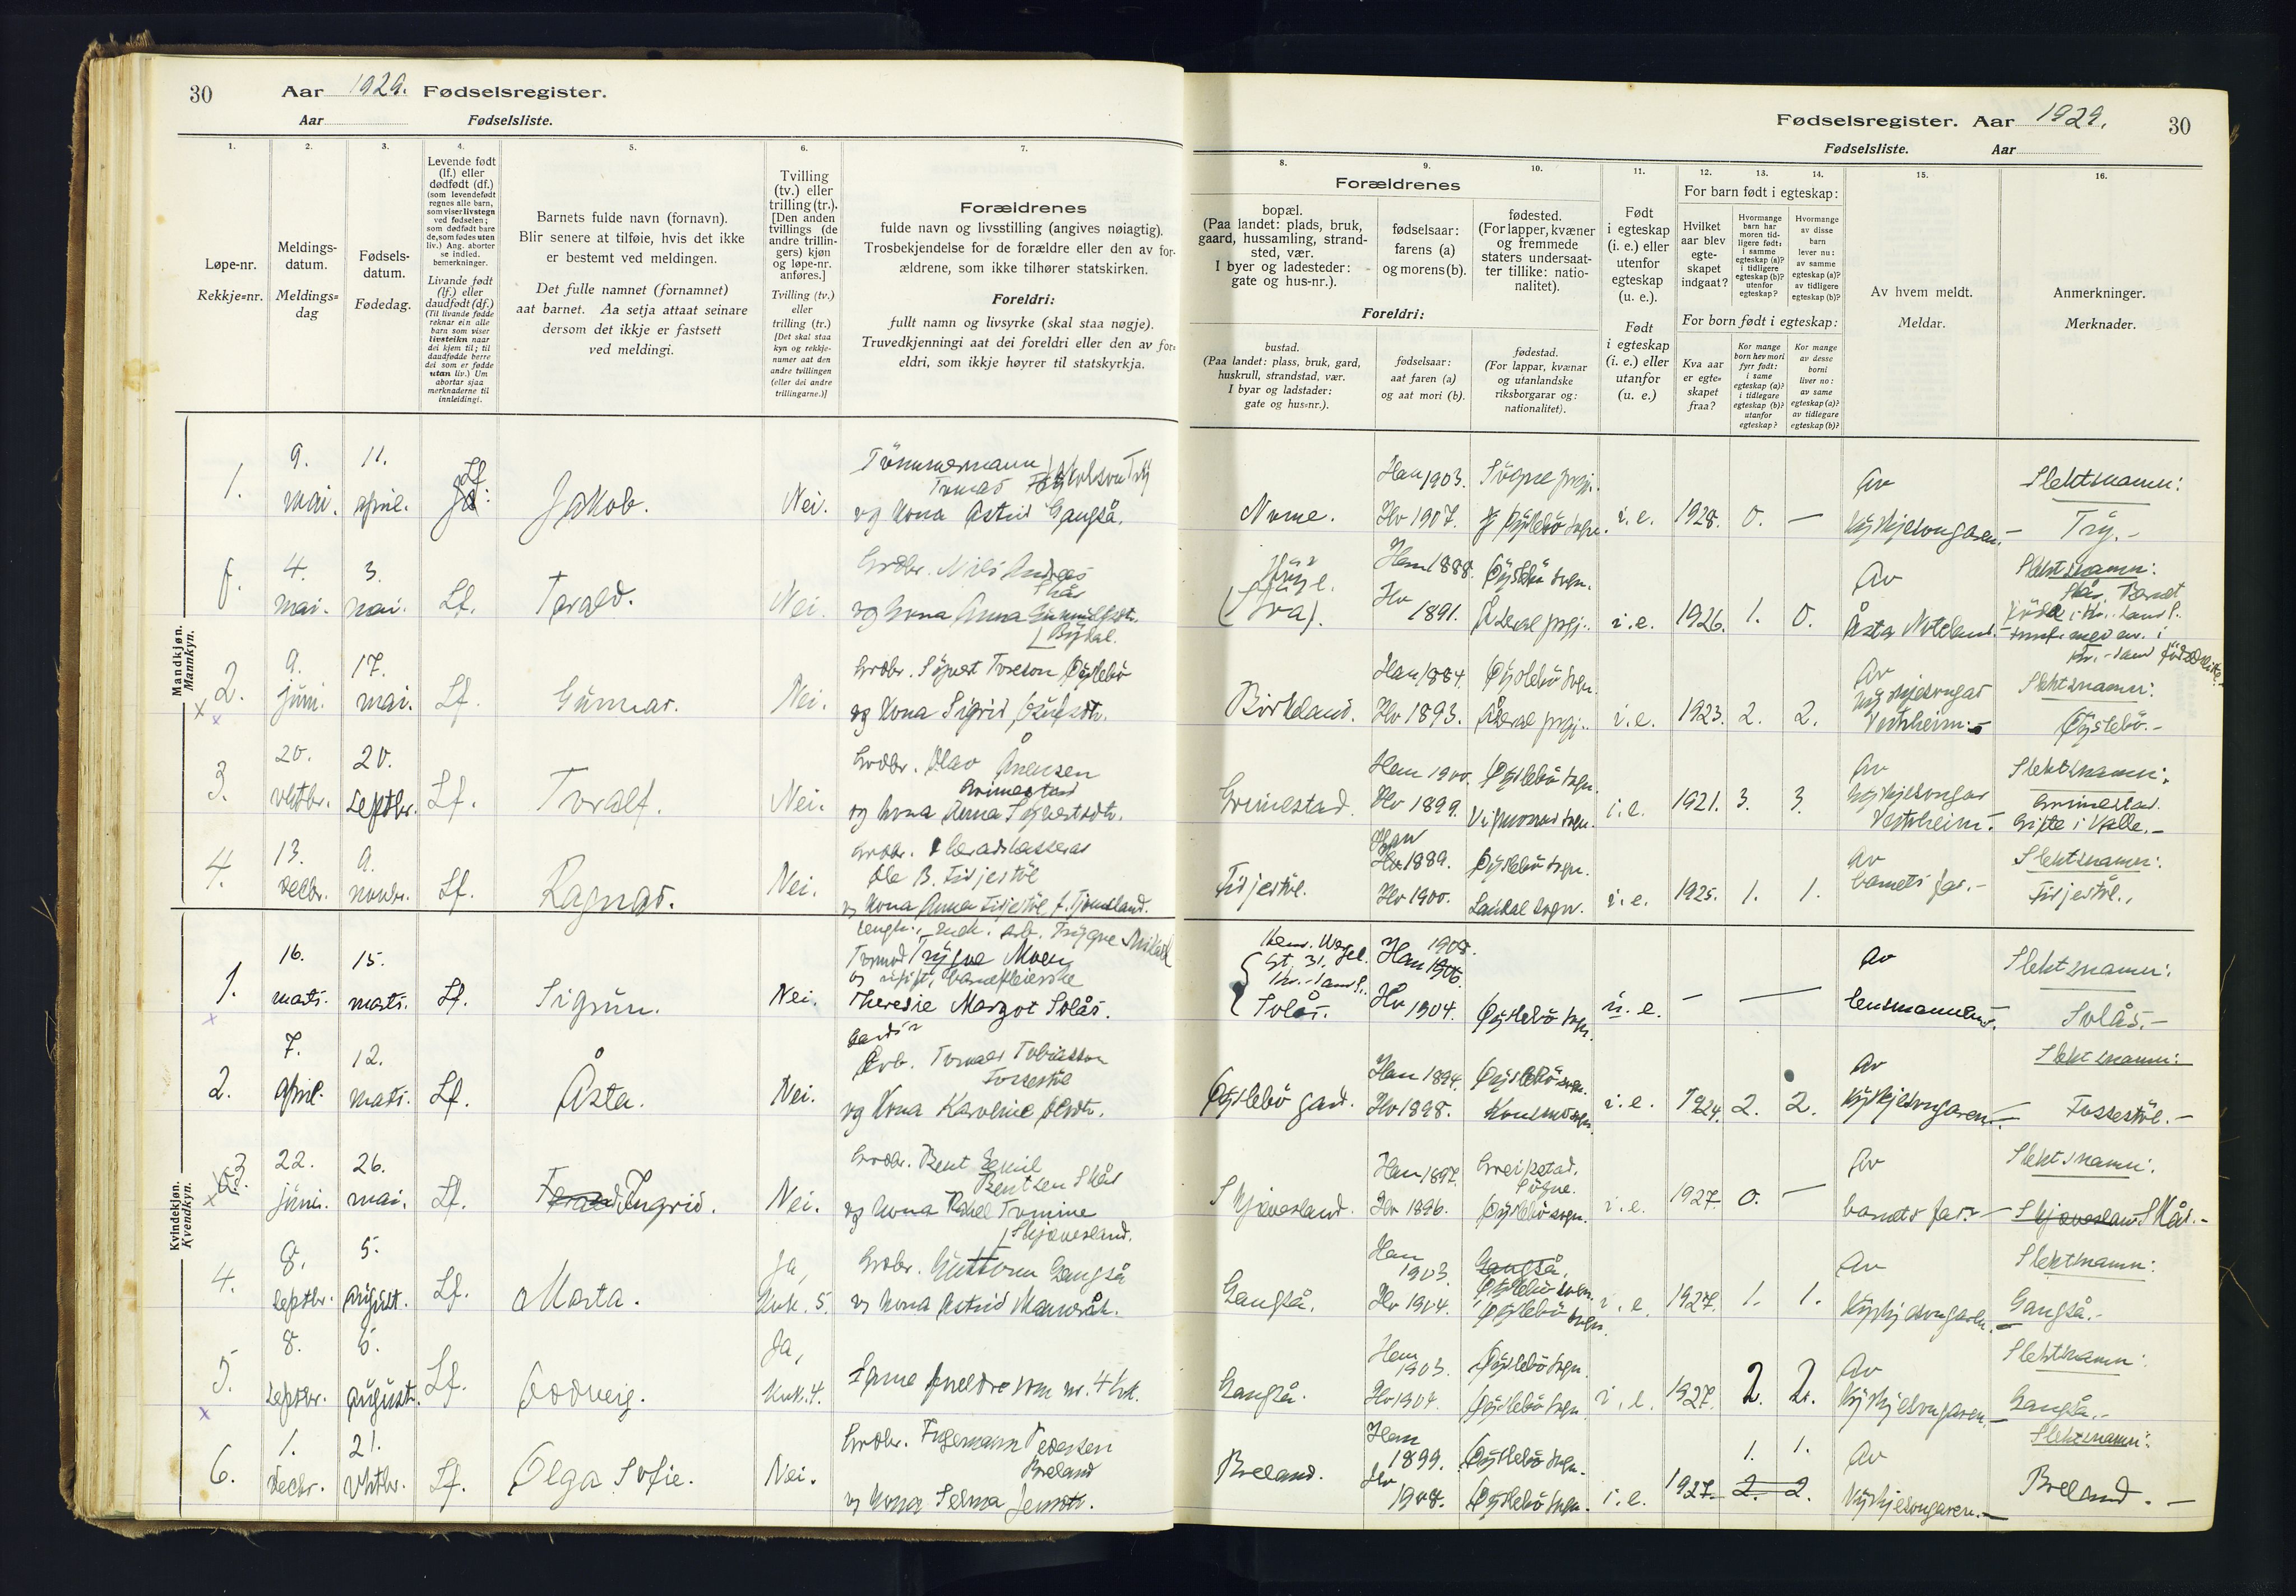 30
Aar 1929. Fødselsregister.
Aar
Fødselsliste.
1.
2.
3.
4.
5.
6.
7.
Løpe-nr.
Rekkje=nr.
Meldings-
datum.
Meldings=
dag
Fødsels-
datum.
Fødedag.
Levende født
(lf.) eller
dødfødt (df.)
(som levendefødt
regnes alle barn,
som viser livstegn
ved fødselen;
som dødfødt bare
de, som fødes uten
liv.) Ang. aborter
se indled.
bemerkninger.
Livande født
(lf.) eller
daudfødt (df.)
(Til livande fødde
reknar ein alle
barn som viser
livsteikn naar
dei kjem til; til
daudfødde berre
dei som er fødde
utan liv.) Um
abortar sjaa
merknaderne til
innleidingi.
Barnets fulde navn (fornavn).
Blir senere at tilføie, hvis det ikke
er bestemt ved meldingen.
Det fulle namnet (fornamnet)
aat barnet. Aa setja attaat seinare
dersom det ikkje er fastsett
ved meldingi.
Tvilling
(tv.) eller
trilling (tr.).
[Den anden
tvillings (de
andre trillin-
gers) kjøn
og løpe-nr.
anføres.]
Tvilling (tv.)
eller
trilling (tr.)
[Det skal staa
kyn og rekkje-
numer aat den
andre tvillingen
(eller dei andre
trillingarne.)]
Forældrenes
fulde navn og livsstilling (angives nøiagtig).
Trosbekjendelse for de forældre eller den av for-
ældrene, som ikke tilhører statskirken.
Foreldri:
fullt namn og livsyrke (skal staa nøgje).
Truvedkjenningi aat dei foreldri eller den av for=
eldri, som ikkje høyrer til statskyrkja.
Mandkjøn.
Mannkyn.
1.
9.
mai.
11.
april.
Lf.
Jakob.
Nei.
Tömmermann
Tomas Jakobson Try
og kona Astrid Gangså.
4.
mai.
3.
mai.
Lf.
Torald.
Nei.
Grdbr. Nils Andreas
Skår
og kona Anna
2.
9.
juni.
17.
mai.
Lf.
Gunnar.
Nei.
Grdbr. Sigvart Toreson Øyslebö
og kona Sigrid
3.
20.
oktbr.
20.
septbr.
Lf.
Toralf.
Nei.
Grdbr. Olav Ånensen
Grimestad
og kona Anna Sigvartsdtr.
4.
13.
decbr.
9.
novbr.
Lf.
Ragnar.
Nei.
Grdbr. heradskasserar
Ole B. Fisjestöl
og kona Anna Fisjestöl f. Tjomsland.
Kvindekjøn.
Kvendkyn.
1.
16.
mars.
15.
mars.
Lf.
Sigrun.
Nei.
Tormod Trygve Moen
og ugift, barnepleierske
Theresie Margot Solås.
2.
7.
April.
12.
mars.
Lf.
Åsta.
Nei.
Arb. Tomas Tobiasson
Fossestöl
og kona Karoline Olsdtr.
3.
22.
juni.
26.
mai.
Lf.
Ingrid.
Nei.
Grdbr. Bent Emil
Bentsen Skår
og kona Rakel Tomine
Skjævesland.
4.
8.
septbr.
5.
August.
Lf.
Marta.
Ja,
Kvk. 5.
Grdbr. Guttorm Gangså
og kona Astrid Mannsåk.
5.
8.
septbr.
5.
August.
Lf.
Oddveig.
Ja,
Kvk. 4.
Same foreldre som nr. 4 kvk.
6.
1.
decbr.
21.
oktbr.
Lf.
Olga Sofie.
Nei.
Grdbr. Ingemann Pedersen
Breland
og kona Selma Jensdtr.
Fødselsregister. Aar 1929.
30
Fødselsliste.
Aar
8.
9.
10.
11.
12.
13.
14.
15.
16.
Forældrenes
bopæl.
(Paa landet: plads, bruk,
gaard, hussamling, strand-
sted, vær.
I byer og ladesteder:
gate og hus-nr.).
fødselsaar:
farens (a)
og morens (b).
fødested.
(For lapper, kvæner
og fremmede
staters undersaat-
ter tillike: natio-
nalitet).
Foreldri:
bustad.
(Paa landet: plass, bruk, gard,
huskrull, strandstad, vær.
I byar og ladstader:
gate og hus=nr.).
fødselsaar:
aat faren (a)
og aat mori (b).
fødestad.
(For lappar, kvænar
og utanlandske
riksborgarar og:
nationalitet).
Født
i egteskap
(i. e.) eller
utenfor
egteskap
(u. e.).
Født
i egteskap
(i. e.) eller
utanfor
(u. e.)
For barn født i egteskap:
Hvilket
aar blev
egte-
skapet
indgaat?
Hvormange
barn har
moren tid-
ligere født:
i samme
egteskap (a)?
i tidligere
egteskap (b)?
utenfor
egteskap?
Hvormange
av disse
barn
lever nu:
av samme
egteskap (a)?
av tidligere
egteskap (b)?
For born født i egteskap:
Kva aar
er egte=
skapet
fraa?
Kor mange
born hev mori
fyrr født:
i same
egteskap (a)?
i tidlegare
egteskap (b)?
utanfor
egteskap?
Kor mange
av desse
borni
liver no:
av same
egteskap (a)?
av tidlegare
egteskap (b)?
Av hvem meldt.
Meldar.
Anmerkninger.
Merknader.
Nome.
Han 1903.
Hv 1907.
Sögne prgj.
Øyslebö sogn.
i. e.
1928.
0.
—
Av
kyrkjesongaren.—
Slektsnamn:
Try.—
Han 1888.
Hv
1891.
Øyslebö sogn.
Åseral prgj.
i. e.
1926.
1.
0.
Av
Åsta
Slektsnamn:
Skår. Barnet
Birkeland.
Han 1884.
Hv 1893.
Øyslebö sogn.
Åseral prgj.
i. e.
1923.
2.
2.
Av
kyrkjesongar
Vestrheim.—
Slektsnamn:
Øyslebö.—
Grimestad.
Han 1900.
Hv 1899.
Øyslebö sogn.
Vigmostad sogn.
i. e.
1921.
3.
3.
Av
kyrkjesongar
Vestrheim.—
Slektsnamn:
Grimestad.
Gifte i Valle.—
Fisjestöl.
Han
1889.
Hv 1900.
Øyslebö sogn.
Laudal sogn.
i. e.
1925.
1.
1.
Av
barnets far.—
Slektsnamn:
Fisjestöl.
Solås.
1908.
Han 1906.
Hv 1904.
Øyslebö sogn.
u. e.
—
—
Av
lensmannen.
Slektsnamn:
Solås.—
Øyslebö gard.
Han 1894.
Hv 1898.
Øyslebö sogn.
Konsmo sogn.
i. e.
1924.
2.
2.
Av
kyrkjesongaren.—
Slektsnamn:
Fossestöl.—
Skjævesland.
Han 1897.
Hv 1896.
Greipstad.
Sögne.
Øyslebö sogn.
i. e.
1927.
0.
—
Av
barnets far.—
Slektsnamn:
Skjævesland Skår.—
Gangså.
Han
1903.
Hv 1904.
Gangså.
Øyslebö sogn.
Øyslebö sogn.
i. e.
1927.
1.
1.
Av
kyrkjesongaren.—
Slektsnamn:
Gangså.—
Gangså.
Han
1903.
Hv 1904.
Øyslebö sogn.
Øyslebö sogn.
i. e.
1927.
2.
2.
Av
kyrkjesongaren.—
Slektsnamn:
Gangså.—
Breland.
Han
1899.
Hv
1908.
Øyslebö sogn.
Øyslebö sogn.
i. e.
1927.
1.
1.
2.
2.
Av
kyrkjesongaren.—
Slektsnamn:
Breland.—